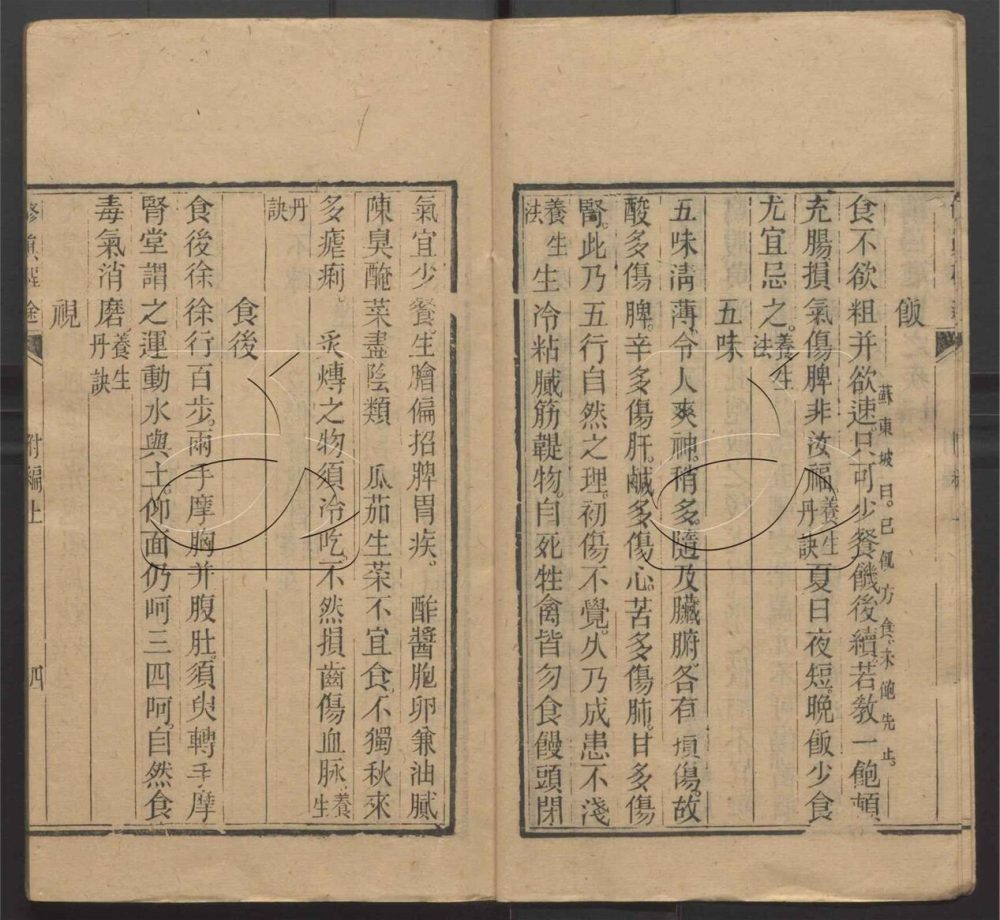 飯
蘇東坡曰已飢方食未飽先止
食不欲粗并欲速只可少餐饑後續若教一飽頓
充腸損氣傷脾非汝福養生丹訣夏日夜短晚飯少食
尤宜忌之養生法
五味
五味清薄令人爽神稍多隨及臟腑各有損傷故
酸多傷脾辛多傷肝鹹多傷心苦多傷肺甘多傷
腎此乃五行自然之理初傷不覺久乃成患不淺
養生法 生冷粘膩筋韌物自死牲禽皆勿食饅頭閉
氣宜少餐生膾偏招脾胃疾 酢醬胞卵兼油膩
陳臭醃菜盡陰類 瓜茄生菜不宜食不獨秋來
多瘧痢 炙煿之物須冷吃不然損齒傷血脉養生
丹訣
食後
食後徐徐行百步兩手摩胸并腹肚須臾轉手摩
腎堂謂之運動水與土仰面仍呵三四呵自然食
毒氣消磨養生丹訣
視
修真程途 附編上 四